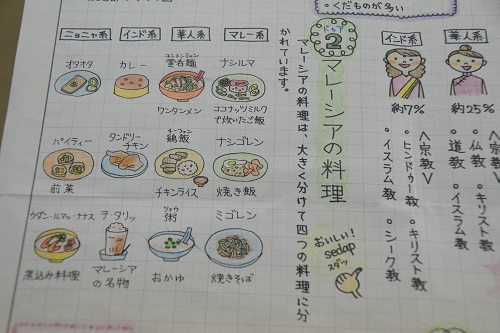 ・くだものが多い
華人系
約25%
＜宗教＞
・仏教 ・キリスト教
・道教 ・イスラム教
インド系
約7%
＜宗教＞
・ヒンドゥー教 ・キリスト教
・イスラム教 ・シーク教
ドゥア
2
マレーシアの料理
おいしい!
sedap
スダッ
マレーシアの料理は、大きく分けて四つの料理に分
かれています。
マレー系
ナシルマ
ココナッツミルク
で炊いたご飯
ナシゴレン
焼き飯
ミゴレン
焼きそば
華人系
雲呑麺
ワンタンメン
チーファン
鶏飯
チキンライス
粥
おかゆ
インド系
カレー
タンドリー
チキン
テ・タリッ
マレーシア
の名物
ニョニャ系
オタオタ
パイティー
前菜
ウダン・ルマッ・ナナス
煮込み料理